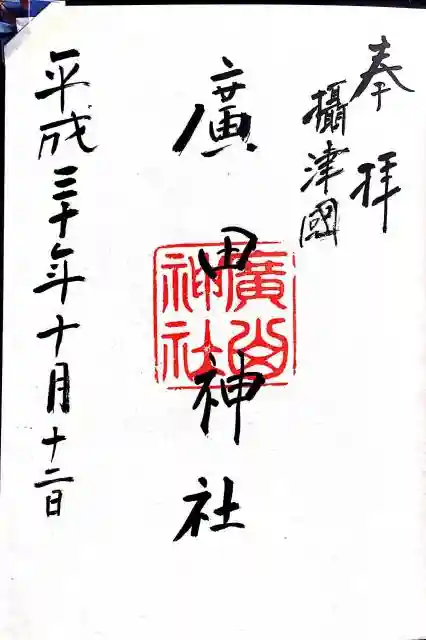 奉拝
攝津國
廣田神社
廣田神社
平成三十年十月十二日